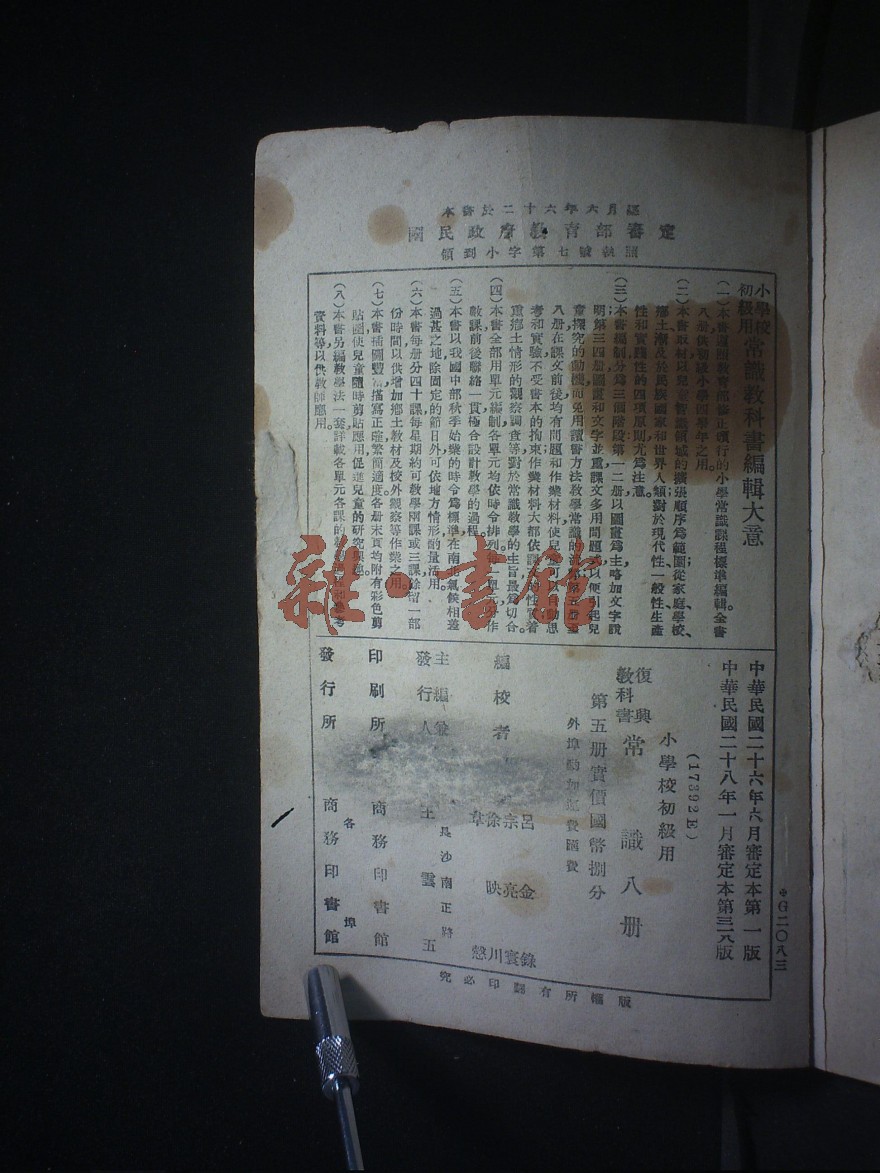 本書於二十六年六月經
國民政府教育部審定
領到小字第七號執照
小學校初級用常識教科書編輯大意
(一)本書遵照教育部修正頒行的小學常識課程標準編輯全書
八册供初級小學四學年之用。
(二)本書取材以兒童智識領域的擴張順序爲範圍從家庭學校、
鄉土漸及於民族國家和世界人類對於現代性一般性生產
性和實踐性的四項原則尤爲注意。
(三)本書編制分爲三個階段第一二册以圖畫爲主略加文字說
明第三四册圖畫和文字並重課文多用問題式以便引起兒
童探究的動機而免用讀書方法教學常識的
八册在課文前後均有問題和作業材料使兒童可以自動思
考和實驗不受書本的拘束作業材料大都依課文的性質着
重鄉土情形的觀察調查等對於常識教學的主旨最爲切合。
(四)本書全部用單元編制各單元均依時令排列每一單元分作
數課前後聯絡一貫極合設計教學的過程。
(五)本書以我國中部秋季始業的時令爲標準在南北氣候相差
過甚之地除固定的節日外可依地方情形酌量活用。
(六)本書每册分四十課每星期約可教學兩課或三課餘留一部
份時間以供增加鄉土教材及校外觀察等作業之用。
(七)本書插圖豐富描寫正確繁簡適度各册末頁均附有彩色剪
貼圖使兒童隨時剪貼應用促進兒童的研究興趣。
(八)本書另編教學法一套詳載各單元各課的教學
資料等以供教師應用。
※G二〇八三
中華民國二十六年六月審定本第一版
中華民國二十八年一月審定本第三二八版
(17392E)
小學校初級用
復興教科書 常識八册
第五册實價國幣捌分
外埠酌加運費匯費
編校者 呂金錄
宗亮寰
徐映川
韋慤
主編兼發行人 王雲五
長沙南正路
印刷所 商務印書館
各埠
發行所 商務印書館
版權所有翻印必究
雜·書館